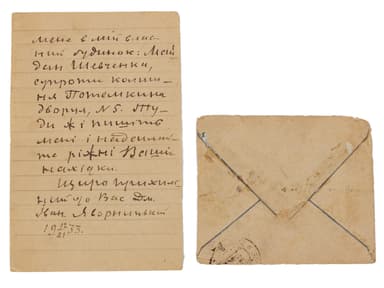 мене в мій влас
ний будинок: Май
дан Шевченка,
супроти колиш-
ня Потемкина
дворця, N 5. Ту-
ди ж і пишіть
мені і надсилай
те ріжні Ваші
находки.
Щиро прихиль
ний до Вас Дм.
Іван. Яворницький
19 33.